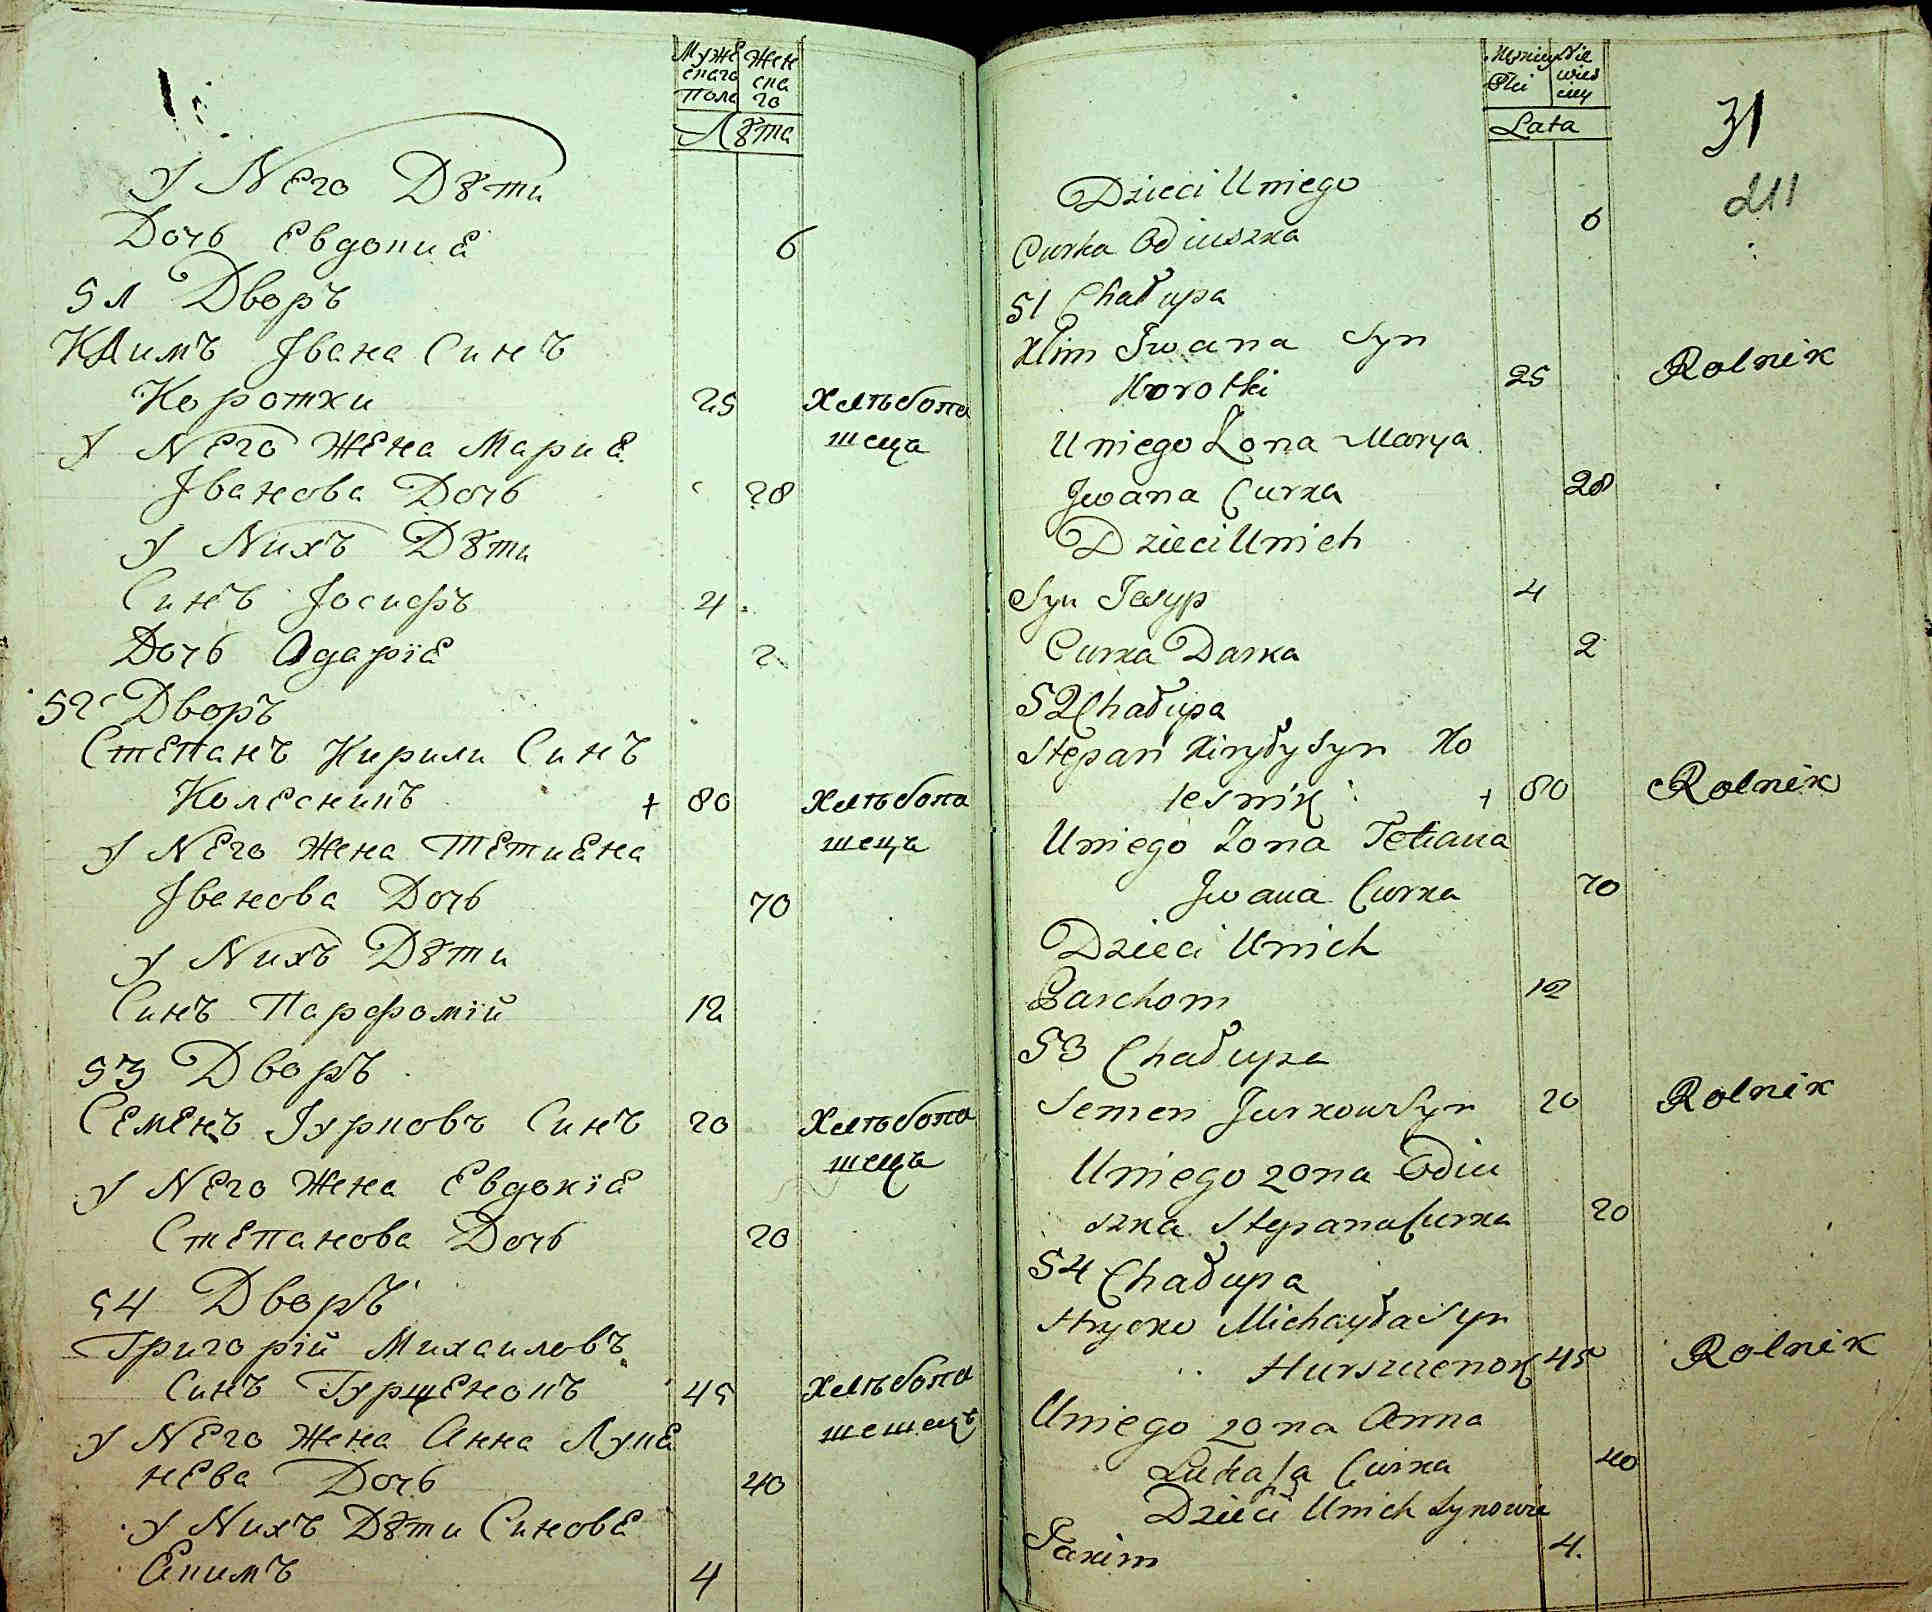 Муже Жен
скаго ска
Пола го
Лѣта
У Него Дѣти
Дочь Евдокиѣ 6
51 Дворъ
Климъ Івана Синъ
Коротки 25 Хлѣбопа
шецъ
У Него Жена Мариѣ
Іванова Дочь 28
У Нихъ Дѣти
Синъ Іосифъ 4
Дочь Одаріѣ 2
52 Дворъ
Степанъ Кирили Синъ
Колесникъ + 80 Хлѣбопа
шецъ
У Него Жена Тетиѣна
Іванова Дочь 70
У Нихъ Дѣти
Синъ Парфомій 12
53 Дворъ
Семенъ Јурковъ Синъ 20 Хлѣбопа
шецъ
У Него Жена Евдокіѣ
Степанова Дочь 20
54 Дворъ
Григорій Михаиловъ
Синъ Гурщенокъ 45 Хлѣбопа
шешецъ
У Него Жена Анна Лукѣ
нева Дочь 40
У Нихъ Дѣти Синовѣ
Екимъ 4
Lata
31
211
Dzieci Uniego
Curka Odiuszka 6
51 Chałupa
Klim Iwana Syn
Korotki 25 Rolnik
Uniego Zona Marya
Iwana Curka 28
Dzieci Unich
Syn Josyp 4
Curka Darka 2
52 Chałupa
Stepan Kiryły Syn Ko
lesnik + 80 Rolnik
Uniego Zona Tetiana
Iwana Curka 70
Dzieci Unich
Parchom 12
53 Chałupa
Semen Jurkow Syn 20 Rolnik
Uniego zona Odiu
szka Stepana Curka 20
54 Chałupa
Hrycko Michayła Syn
Hurszczenok 45 Rolnik
Uniego zona Anna
Lukasza Curka 40
Dzieci Unich Synowie
Jakim 4.